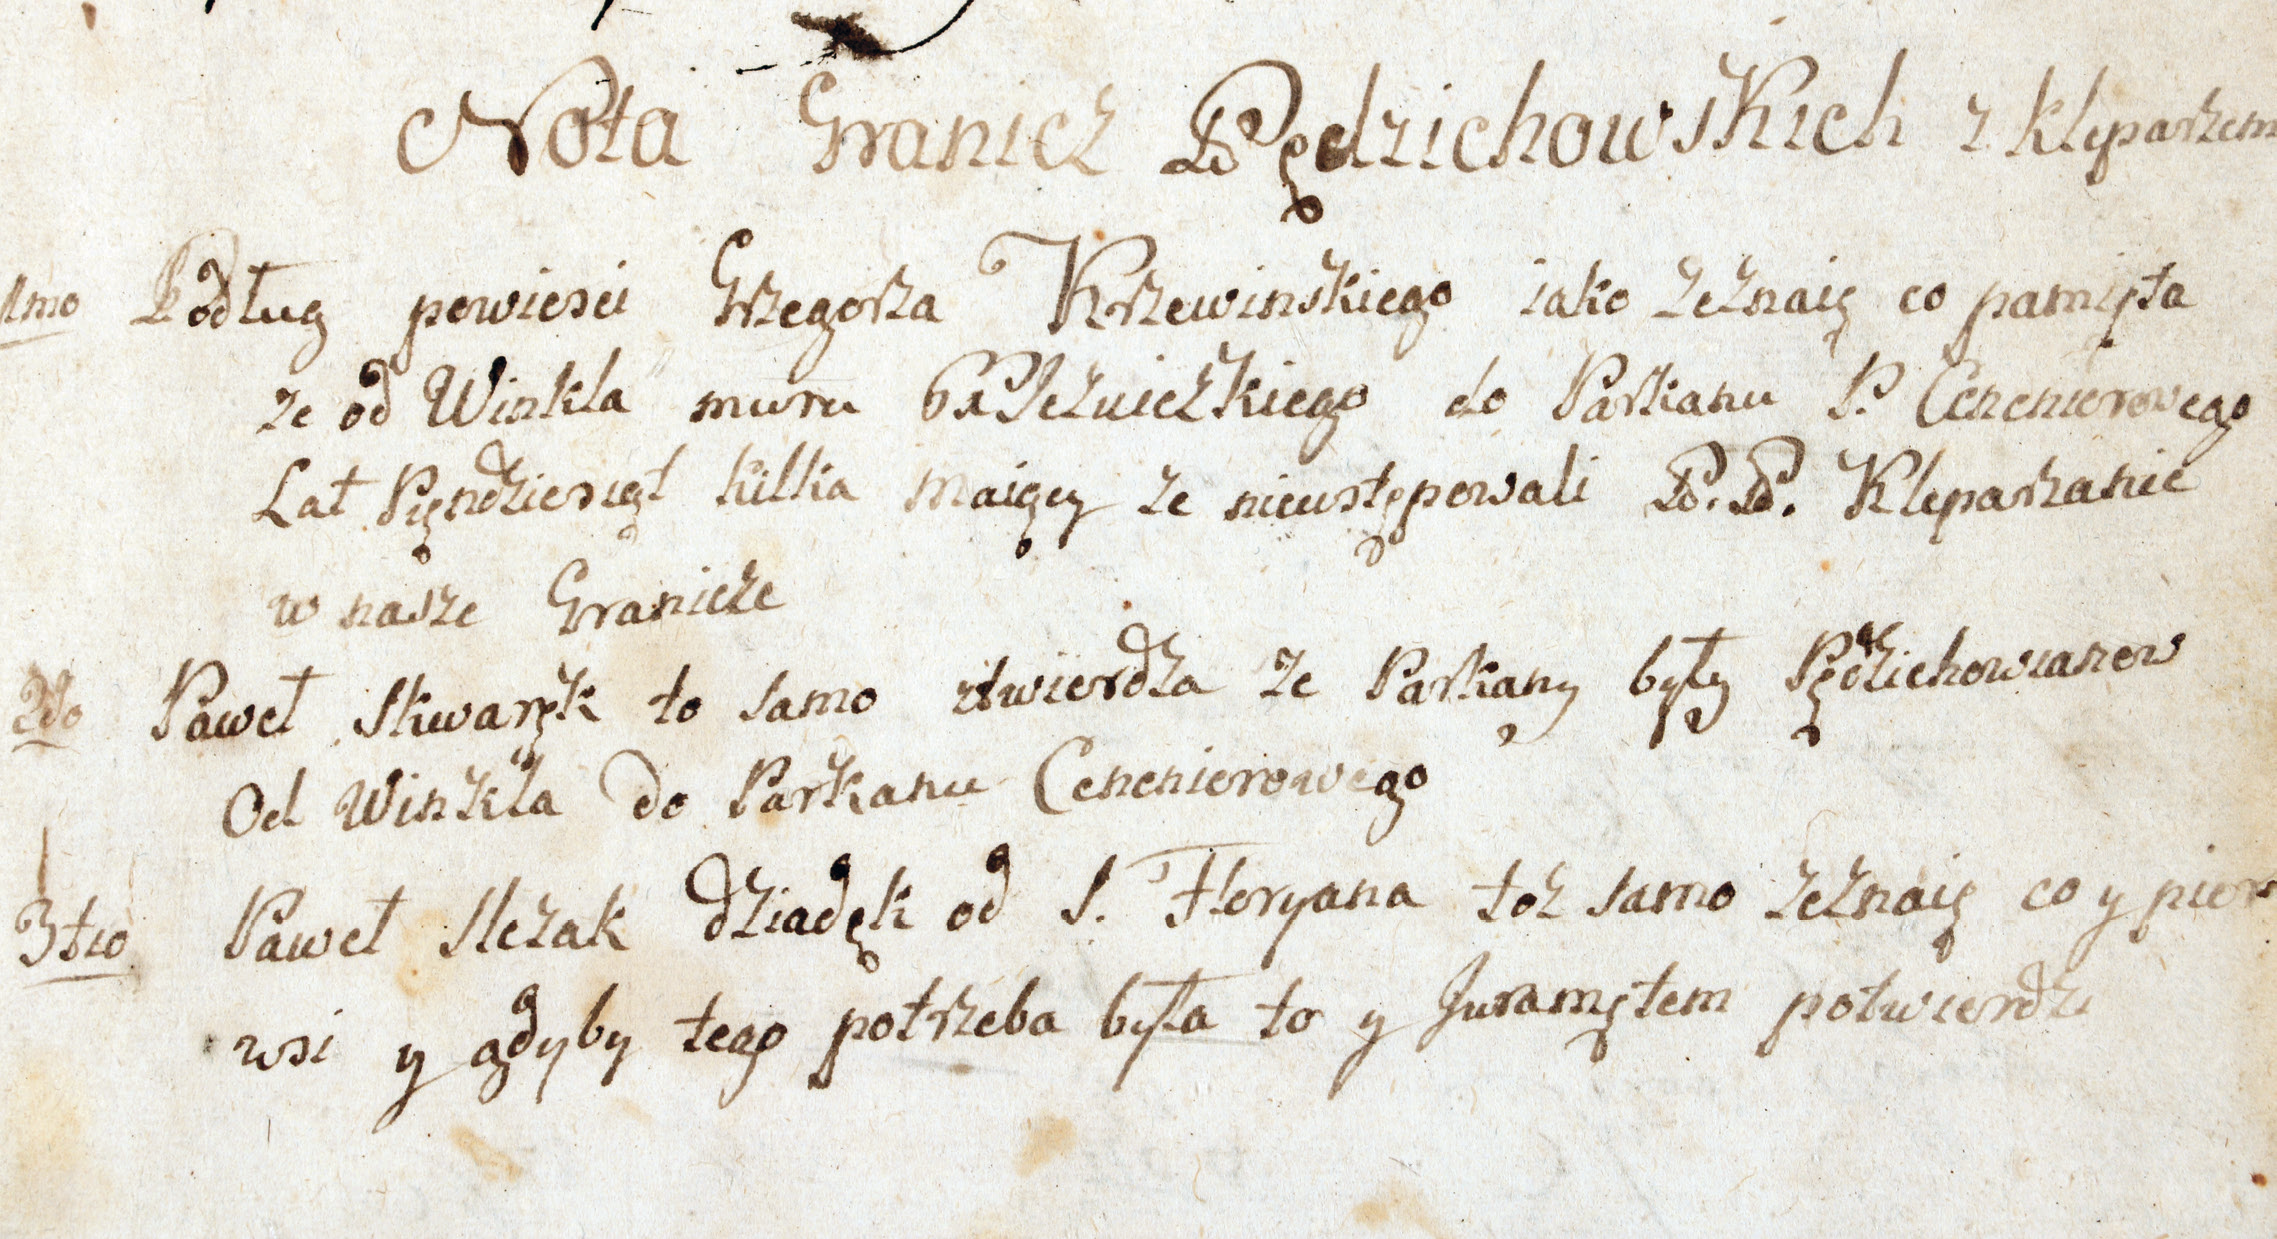 Nota Granicz Pędzichowskich z Kleparzem
1mo Podług powiesci Grzegorza Krzewinskiego iako zeznaię co pamięta
ze od Winkla muru do Parkanu P. Cenenierowego
Lat Pięndziesiąt kilka maiący ze nieustępowali P. P. Kleparzanie
w nasze Granicze
2do Paweł Skwaręk to samo ztwierdza ze Parkany były Pędzichowianow
Od Winkla do Parkanu Cenenierowego
3tio Paweł Slezak dziadęk od S. Floryana toz samo zeznaię co y pier
wsi y gdyby tego potrzeba była to y Juramętem potwierdzi